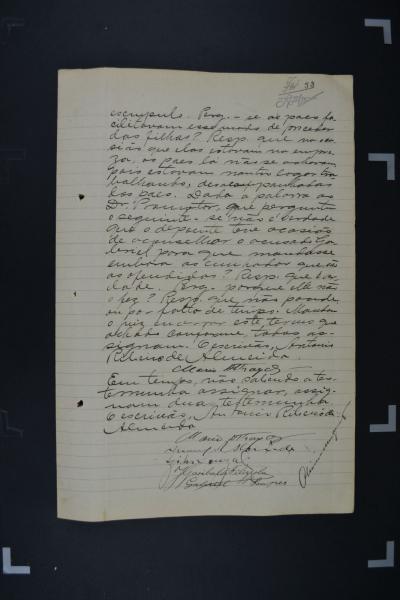 33
escrupulo. Perg. - se os paes fa
cilitavam esse modo de proceder
das filhas? Resp. que na oca
sião que elas estavam na empre
za, os paes lá não se achavam
pois estavam noutro logar tra
balhando, desacompanhadas
dos paes. Dada a palavra ao
Dr. Promotor, que perguntou
o seguinte - se não é verdade
que o depoente teve ocasião
de aconselhar o acusado Ga
briel para que mandasse
embora as
as ofendidas? Resp. que é ver
dade. Perg. porque elle não
o fez? Resp. que não poude,
ou por falta de tempo. Mandou
o juiz encerrar este termo que
achado conforme, todos as-
signam. O escrivão, Antonio
Ribeiro de Almeida.
Mario
Em tempo, não sabendo a tes-
temunha assignar, assig-
nam duas testemunhas.
O escrivão, Antonio Ribeiro de
Almeida
Mario
Gabriel